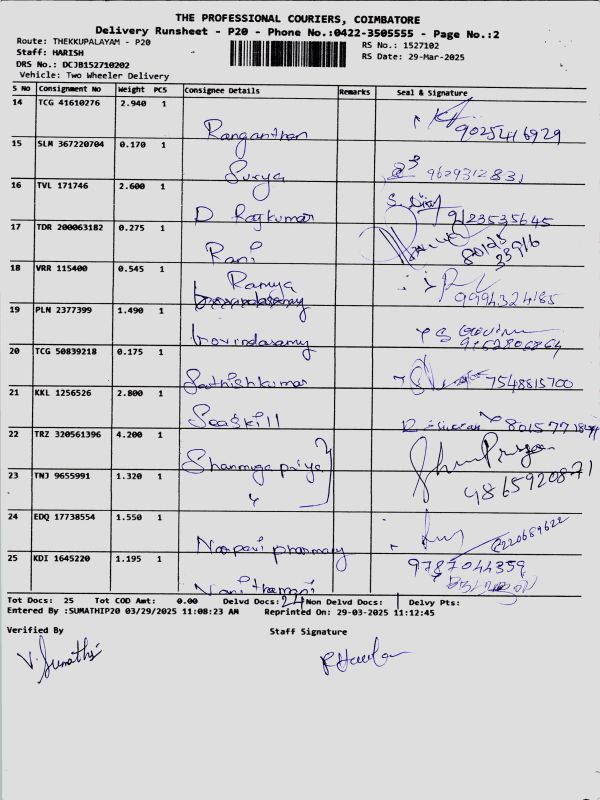 THE PROFESSIONAL COURIERS, COIMBATORE
Delivery Runsheet - P20 - Phone No.:0422-3505555 - Page No.:2
Route: THEKKUPALAYAM - P20
RS No.: 1527102
Staff: HARISH
RS Date: 29-Mar-2025
DRS No.: DCJB152710202
Vehicle: Two Wheeler Delivery
S No Consignment No Weight PCS Consignee Details Remarks Seal & Signature
14 TCG 41610276 2.940 1
Ranganthan 9025416929
15 SLM 367220704 0.170 1
Surya 9629312831
16 TVL 171746 2.600 1
D Rajkumar 9123535645
17 TDR 200063182 0.275 1
Rani 80125
33916
18 VRR 115400 0.545 1
Ramya 9994324185
19 PLN 2377399 1.490 1
Govindasamy
20 TCG 50839218 0.175 1
Sathishkumar 7548815700
21 KKL 1256526 2.800 1
Seaskill
22 TRZ 320561396 4.200 1
Shanmuga priya
23 TNJ 9655991 1.320 1
4865920871
24 EDQ 17738554 1.550 1
pharmacy 8220689622
25 KDI 1645220 1.195 1
9787044359
Tot Docs: 25 Tot COD Amt: 0.00 Delvd Docs: 24 Non Delvd Docs: 1 Delvy Pts:
Entered By :SUMATHIP20 03/29/2025 11:08:23 AM Reprinted On: 29-03-2025 11:12:45
Verified By Staff Signature
V. Sumathi